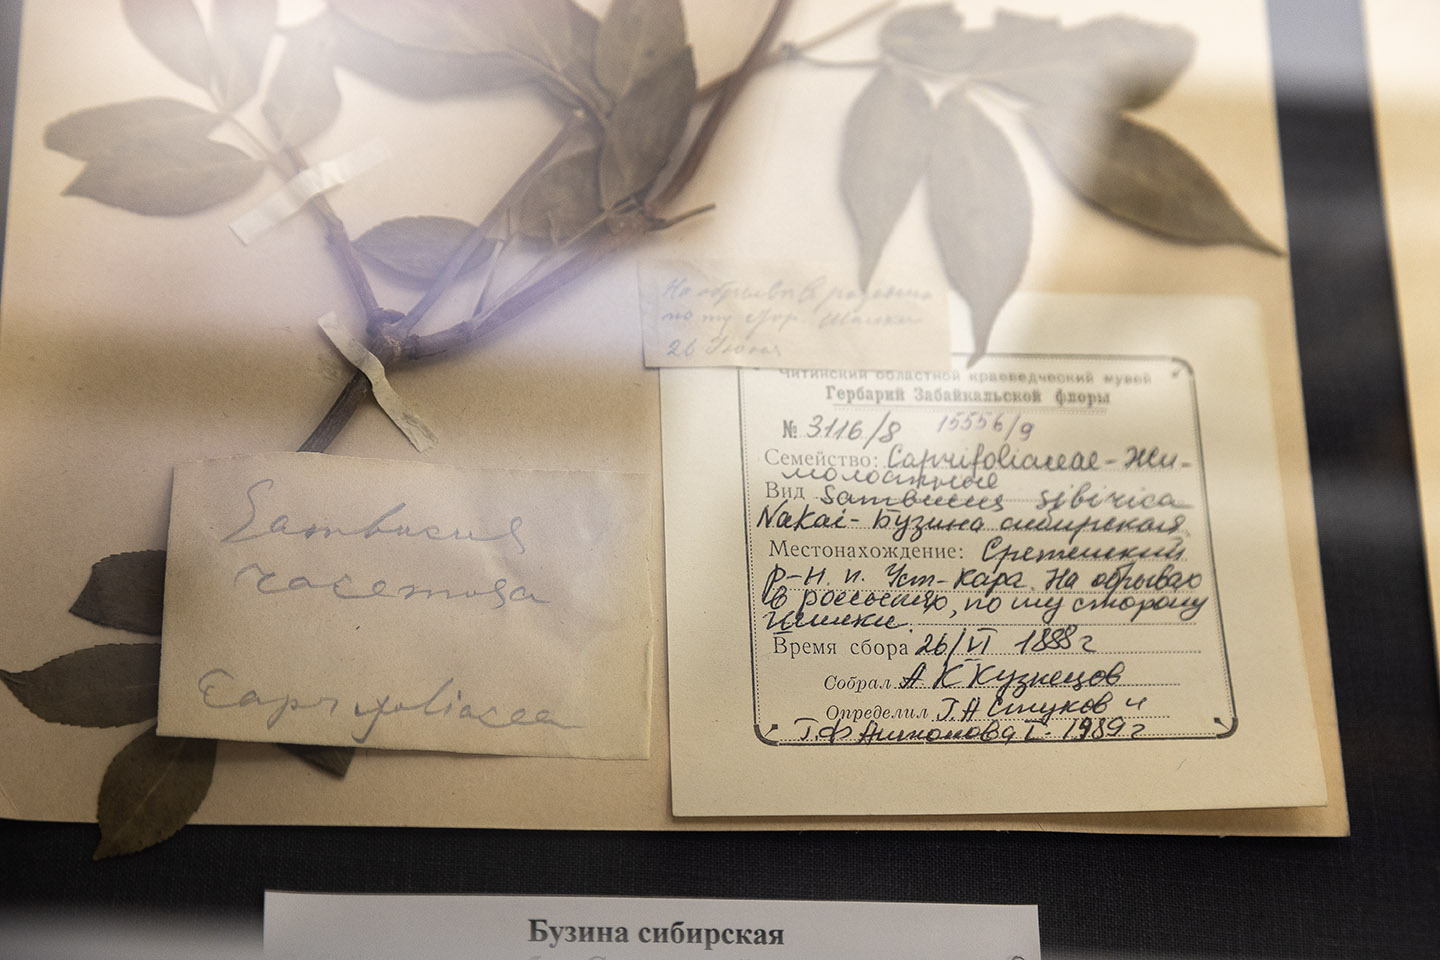 На обрывах в россыпях
по ту стор. Шилки
26 Июня
Читинский областной краеведческий музей
Гербарий Забайкальской флоры
№ 3116/8 15556/9
Семейство: Caprifoliaceae - Жи-
молостные
Вид Sambucus sibirica
Nakai - Бузина сибирская
Местонахождение: Сретенский
р-н. п. Усть-Кара. На обрывах
в россыпях, по ту сторону
Шилки.
Время сбора 26/VI 1888 г
Собрал А К Кузнецов
Определил Г.А Стуков и
1989 г
Sambucus
racemosa
Caprifoliaceae
Бузина сибирская